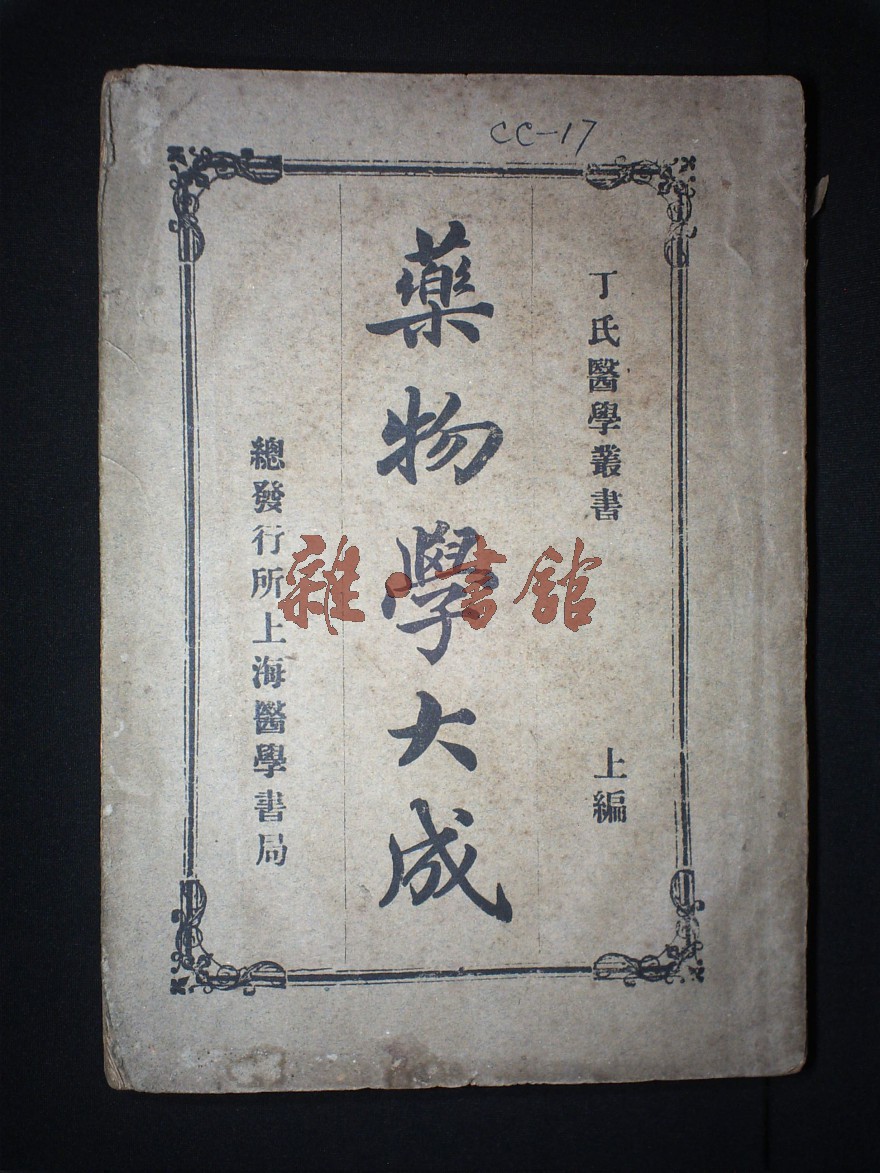 CC-17
丁氏醫學叢書
上編
藥物學大成
總發行所上海醫學書局
雜·書館